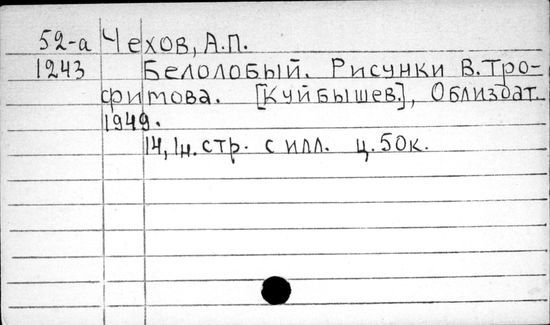 52-а Чехов, А.П.
1243 Белолобый. Рисунки В. Тро-
фимова. [Куйбышев.], Облиздат.
1949.
14, 1н. стр. с илл. ц. 50к.